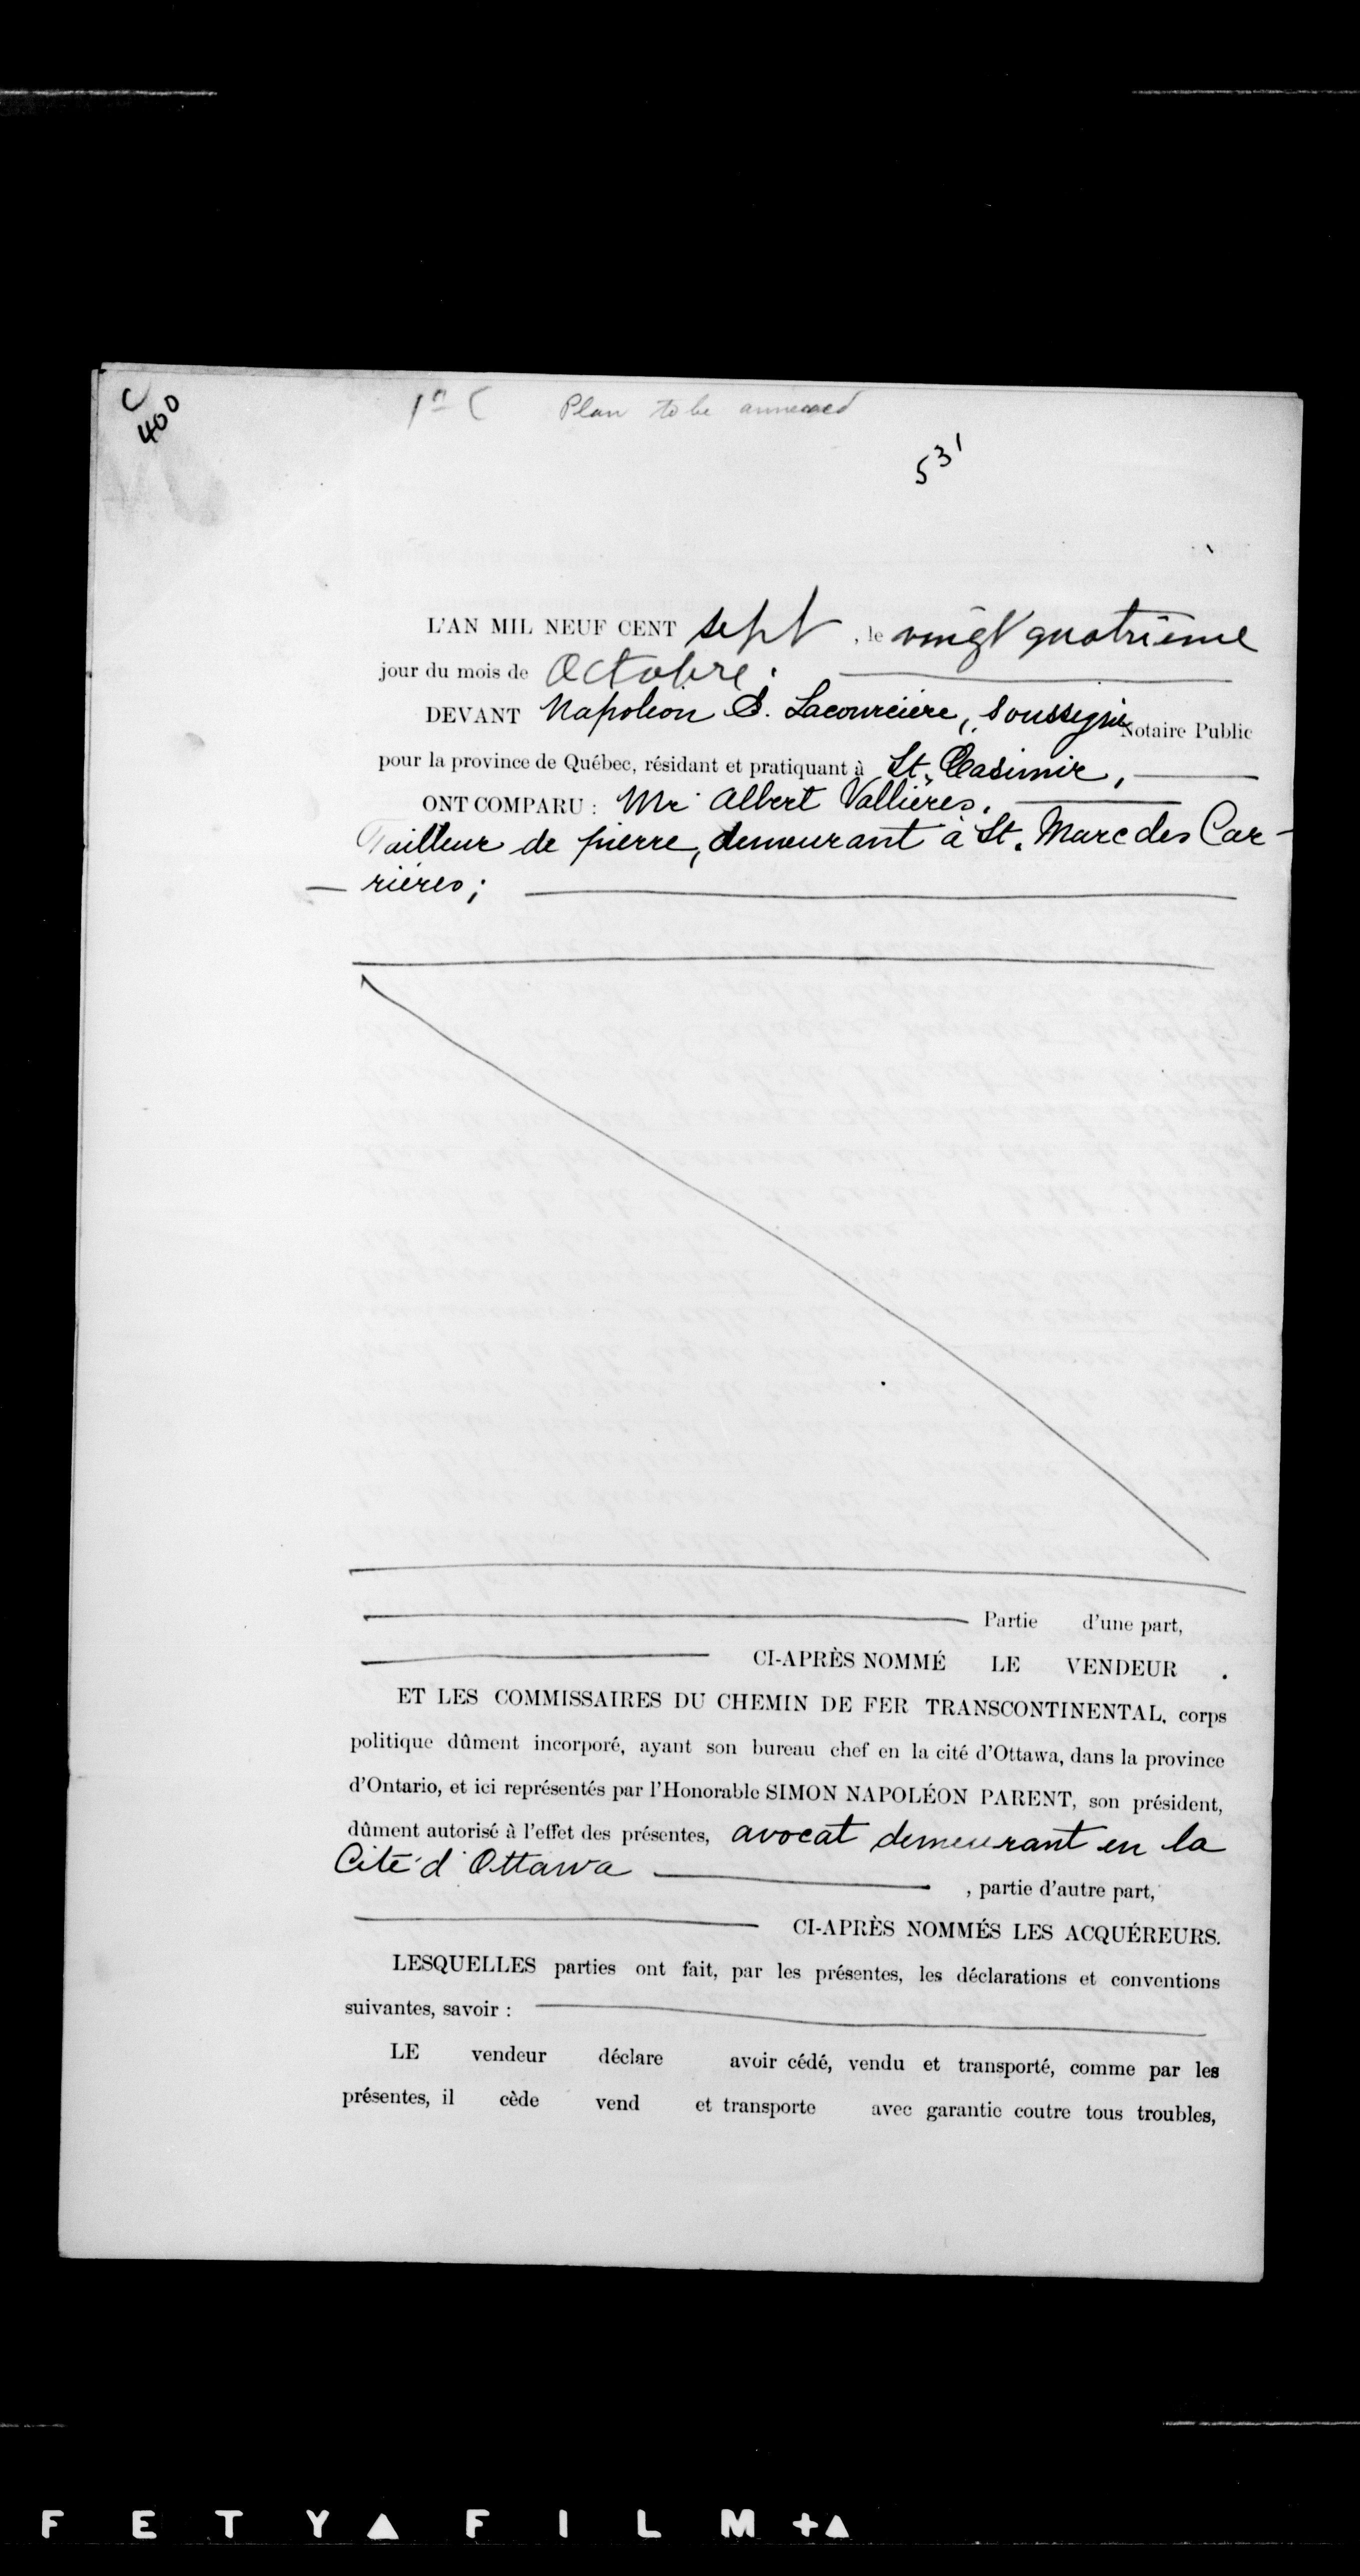 C
400
Plan to be annexed
531
L'AN MIL NEUF CENT sept, le vingt quatrième
jour du mois de Octobre.
DEVANT Napoleon S. Lacourcière, soussigné Notaire Public
pour la province de Québec, résidant et pratiquant à St. Casimir,
ONT COMPARU : Mr Albert Vallières.
Tailleur de pierre, demeurant à St. Marc des Car-
rières;
Partie d'une part,
CI-APRÈS NOMMÉ LE VENDEUR .
ET LES COMMISSAIRES DU CHEMIN DE FER TRANSCONTINENTAL, corps
politique dûment incorporé, ayant son bureau chef en la cité d'Ottawa, dans la province
d'Ontario, et ici représentés par l'Honorable SIMON NAPOLÉON PARENT, son président,
dûment autorisé à l'effet des présentes, avocat demeurant en la
Cité d'Ottawa , partie d'autre part,
CI-APRÈS NOMMÉS LES ACQUÉREURS.
LESQUELLES parties ont fait, par les présentes, les déclarations et conventions
suivantes, savoir :
LE vendeur déclare avoir cédé, vendu et transporté, comme par les
présentes, il cède vend et transporte avec garantie coutre tous troubles,
F E T Y ▲ F I L M + ▲